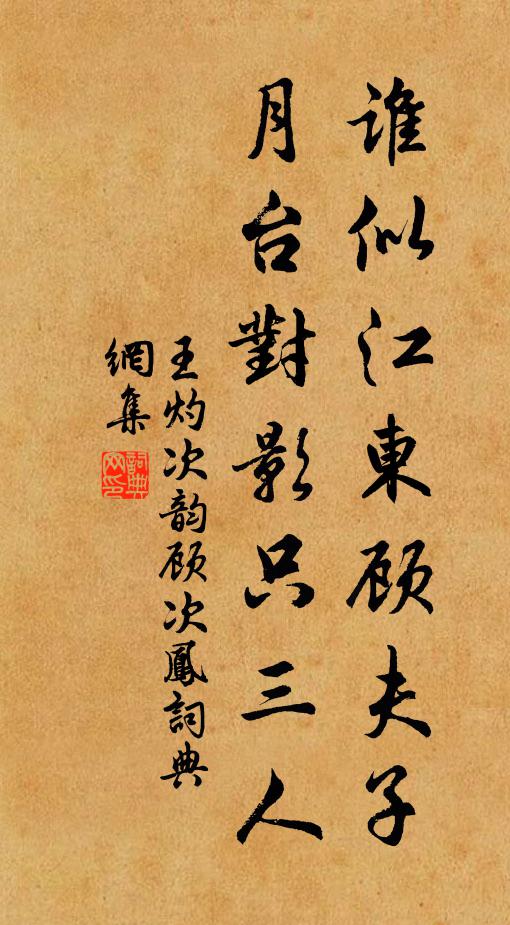 谁似江東顾夫子
月台對影只三人
王灼次韵顾次鳳詞典
網集
詞典
网印